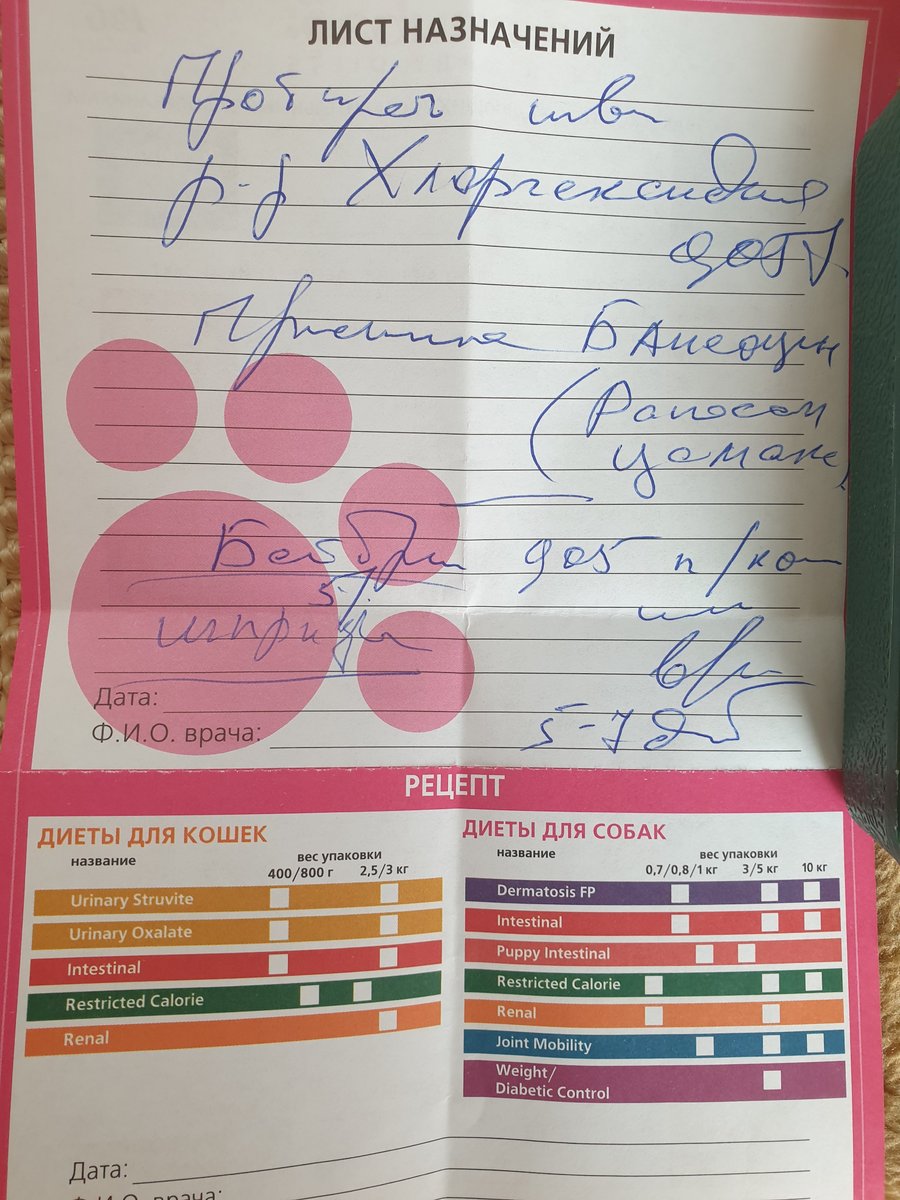 ЛИСТ НАЗНАЧЕНИЙ
швы
р-р Хлоргексидин
Банеоцин
п/кож
или
шприцы
в/м
5-7 дн
Дата:
Ф.И.О. врача:
РЕЦЕПТ
ДИЕТЫ ДЛЯ КОШЕК
название
вес упаковки
400/800 г
2,5/3 кг
Urinary Struvite
Urinary Oxalate
Intestinal
Restricted Calorie
Renal
ДИЕТЫ ДЛЯ СОБАК
название
вес упаковки
0,7/0,8/1 кг
3/5 кг
10 кг
Dermatosis FP
Intestinal
Puppy Intestinal
Restricted Calorie
Renal
Joint Mobility
Weight/
Diabetic Control
Дата:
Ф.И.О. врача: